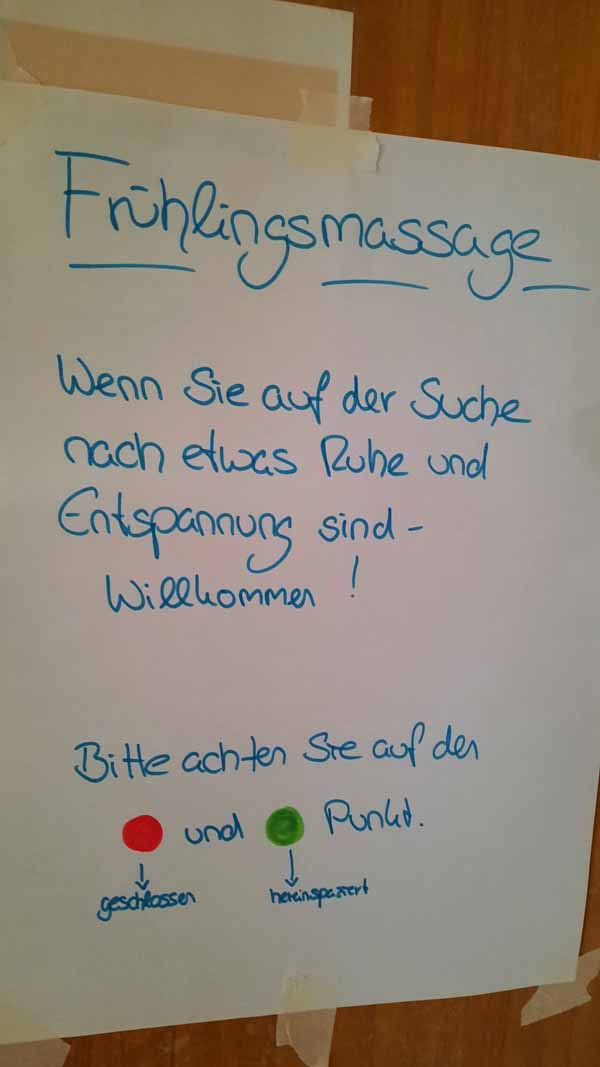 Frühlingsmassage
Wenn Sie auf der Suche
nach etwas Ruhe und
Entspannung sind -
Willkommen !
Bitte achten Sie auf den
und Punkt.
geschlossen hereinspaziert